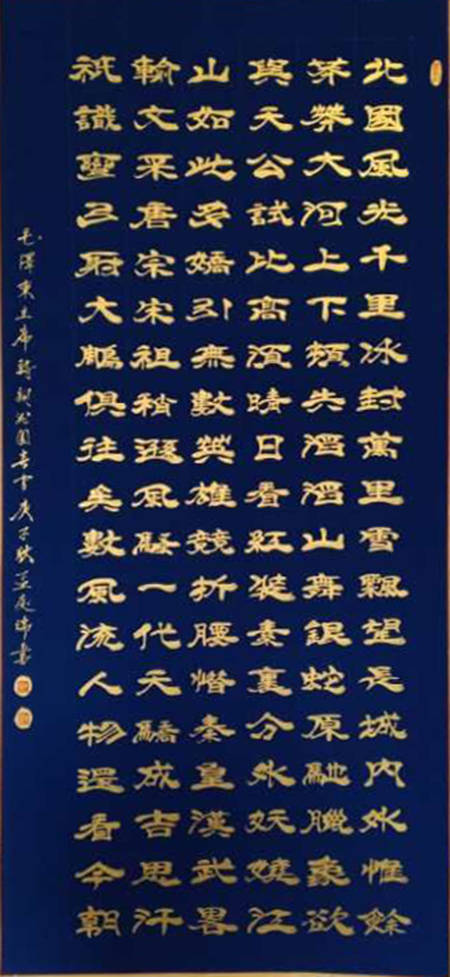 北國風光千里冰封萬里雪飄望長城內外惟餘
莽莽大河上下頓失滔滔山舞銀蛇原馳臘象欲
與天公試比高須晴日看紅裝素裹分外妖嬈江
山如此多嬌引無數英雄競折腰惜秦皇漢武畧
輸文采唐宗宋祖稍遜風騷一代天驕成吉思汗
祇識彎弓射大鵰俱往矣數風流人物還看今朝
毛澤東主席詩詞沁園春雪庚子秋瑞書